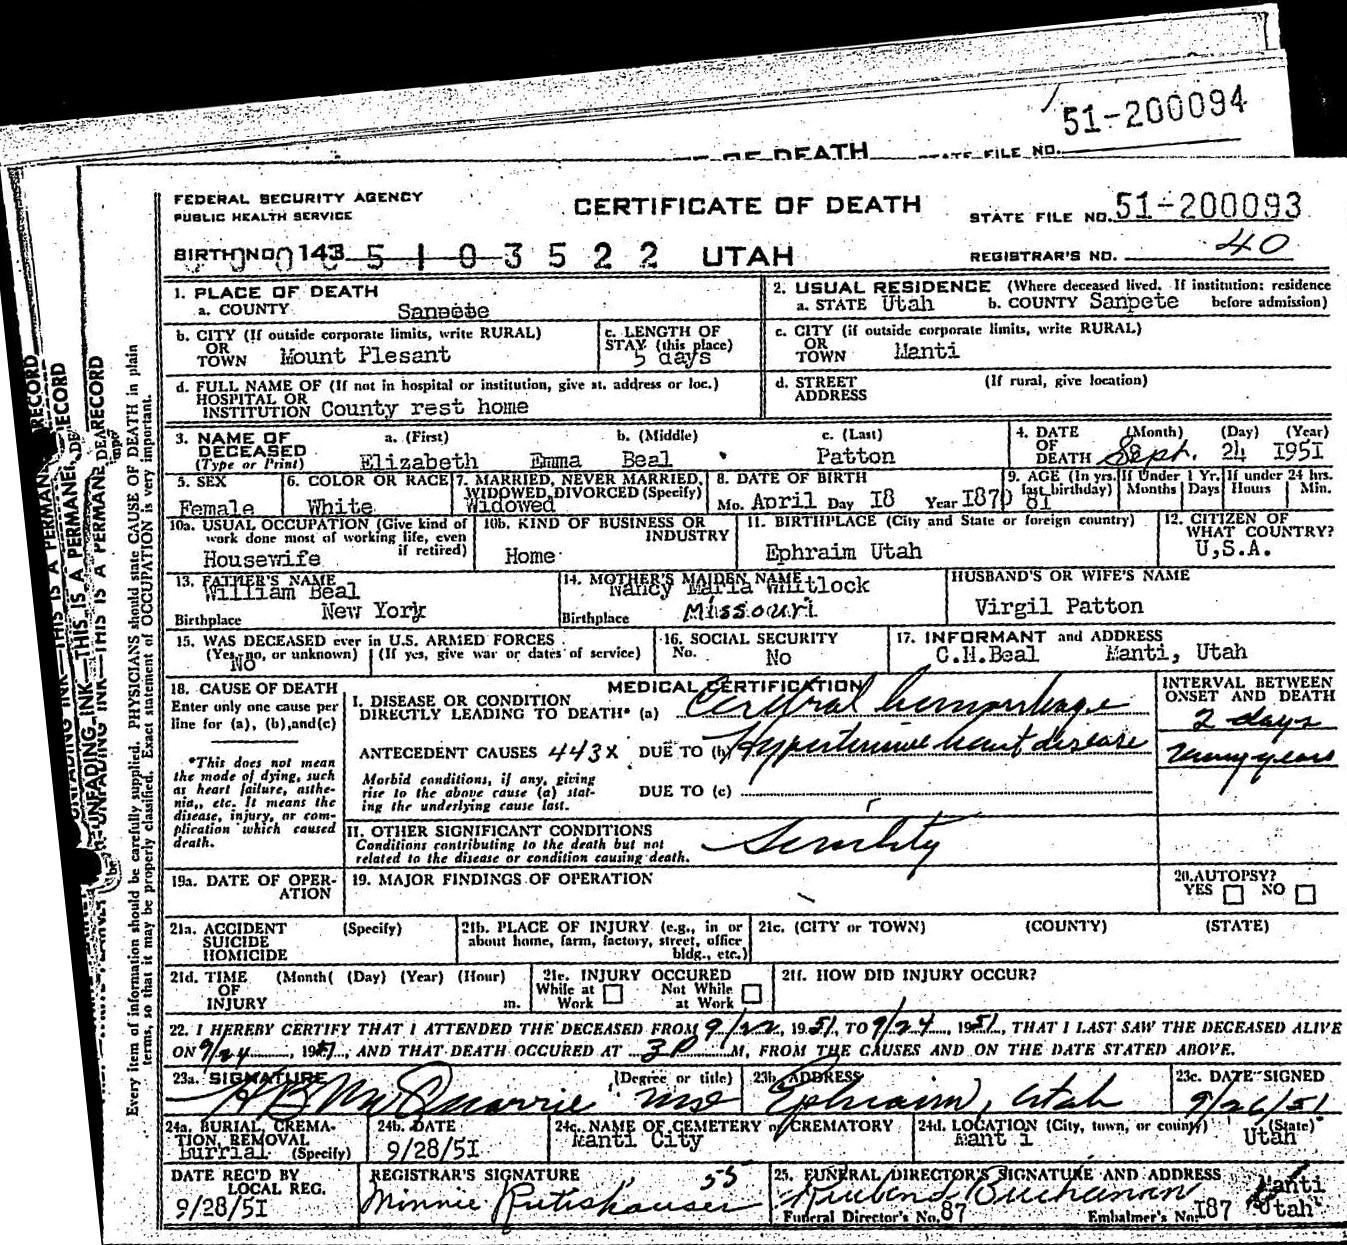 51-200094
OF DEATH STATE FILE NO.
FEDERAL SECURITY AGENCY
PUBLIC HEALTH SERVICE
CERTIFICATE OF DEATH
STATE FILE NO. 51-200093
BIRTH NO. 0 143 5 1 0 3 5 2 2 UTAH
REGISTRAR'S NO. 40
1. PLACE OF DEATH
a. COUNTY Sanpete
2. USUAL RESIDENCE (Where deceased lived. If institution: residence
a. STATE Utah b. COUNTY Sanpete before admission)
b. CITY (If outside corporate limits, write RURAL)
OR
TOWN Mount Plesant
c. LENGTH OF
STAY (this place)
5 days
c. CITY (if outside corporate limits, write RURAL)
OR
TOWN Manti
d. FULL NAME OF (If not in hospital or institution, give st. address or loc.)
HOSPITAL OR
INSTITUTION County rest home
d. STREET (If rural, give location)
ADDRESS
3. NAME OF DECEASED
(Type or Print)
a. (First) b. (Middle) c. (Last)
Elizabeth Emma Beal Patton
4. DATE (Month) (Day) (Year)
OF
DEATH Sept. 24 1951
5. SEX
Female
6. COLOR OR RACE
White
7. MARRIED, NEVER MARRIED,
WIDOWED, DIVORCED (Specify)
Widowed
8. DATE OF BIRTH
Mo. April Day 18 Year 1870
9. AGE (In yrs. last birthday) 81
If Under 1 Yr. Months Days
If under 24 hrs. Hours Min.
10a. USUAL OCCUPATION (Give kind of
work done most of working life, even
if retired)
Housewife
10b. KIND OF BUSINESS OR
INDUSTRY
Home
11. BIRTHPLACE (City and State or foreign country)
Ephraim Utah
12. CITIZEN OF
WHAT COUNTRY?
U.S.A.
13. FATHER'S NAME
William Beal
Birthplace New York
14. MOTHER'S MAIDEN NAME
Nancy Maria Whitlock
Birthplace Missouri
HUSBAND'S OR WIFE'S NAME
Virgil Patton
15. WAS DECEASED ever in U.S. ARMED FORCES
(Yes, no, or unknown) (If yes, give war or dates of service)
No
16. SOCIAL SECURITY
No. No
17. INFORMANT and ADDRESS
C.H.Beal Manti, Utah
18. CAUSE OF DEATH
Enter only one cause per
line for (a), (b), and (c)
*This does not mean
the mode of dying, such
as heart failure, asthe-
nia, etc. It means the
disease, injury, or com-
plication which caused
death.
MEDICAL CERTIFICATION
I. DISEASE OR CONDITION
DIRECTLY LEADING TO DEATH* (a) Cerebral hemorrhage
ANTECEDENT CAUSES 443X DUE TO (b) Hypertensive heart disease
Morbid conditions, if any, giving
rise to the above cause (a) stat-
ing the underlying cause last.
DUE TO (c)
INTERVAL BETWEEN
ONSET AND DEATH
2 days
many years
II. OTHER SIGNIFICANT CONDITIONS
Conditions contributing to the death but not
related to the disease or condition causing death.
Senility
19a. DATE OF OPER-
ATION
19. MAJOR FINDINGS OF OPERATION
20. AUTOPSY?
YES NO
21a. ACCIDENT (Specify)
SUICIDE
HOMICIDE
21b. PLACE OF INJURY (e.g., in or
about home, farm, factory, street, office
bldg., etc.)
21c. (CITY or TOWN) (COUNTY) (STATE)
21d. TIME (Month( (Day) (Year) (Hour)
OF
INJURY m.
21e. INJURY OCCURED
While at Work Not While at Work
21f. HOW DID INJURY OCCUR?
22. I HEREBY CERTIFY THAT I ATTENDED THE DECEASED FROM 9/22, 1951, TO 9/24, 1951, THAT I LAST SAW THE DECEASED ALIVE
ON 9/24, 1951, AND THAT DEATH OCCURED AT 3P M, FROM THE CAUSES AND ON THE DATE STATED ABOVE.
23a. SIGNATURE (Degree or title)
H B McQuarrie
23b. ADDRESS
Ephraim, Utah
23c. DATE SIGNED
9/26/51
24a. BURIAL, CREMA-
TION, REMOVAL
(Specify)
Burrial
24b. DATE
9/28/51
24c. NAME OF CEMETERY or CREMATORY
Manti City
24d. LOCATION (City, town, or county) (State)
Manti Utah
DATE REC'D BY
LOCAL REG.
9/28/51
REGISTRAR'S SIGNATURE 55
Minnie Rutishauser
25. FUNERAL DIRECTOR'S SIGNATURE AND ADDRESS
Buchanan Manti Utah
Funeral Director's No. 87 Embalmer's No. 187
Every item of information should be carefully supplied. PHYSICIANS should state CAUSE OF DEATH in plain
terms, so that it may be properly classified. Exact statement of OCCUPATION is very important.
UNFADING INK—THIS IS A PERMANENT RECORD